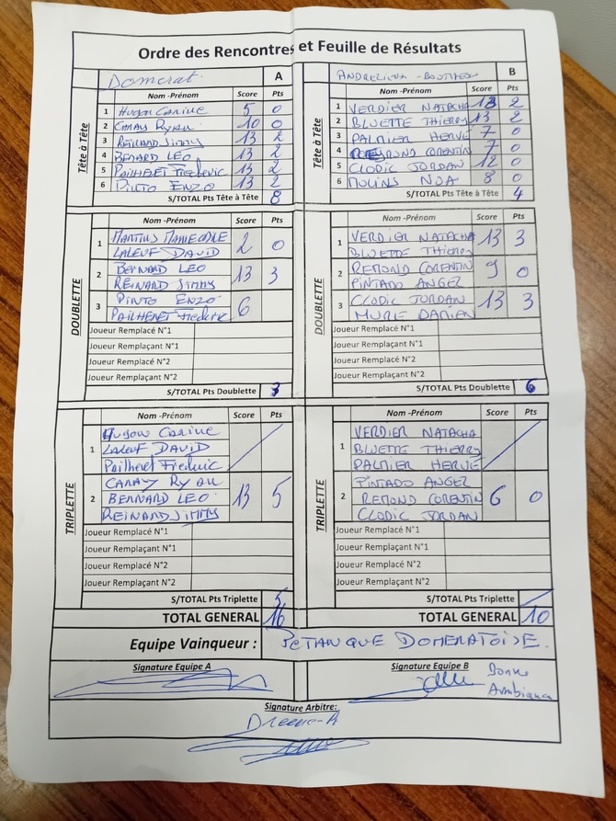 Ordre des Rencontres et Feuille de Résultats
Domerat. A
Nom -Prénom Score Pts
Tête à Tête
1 Hugon Carine 5 0
2 Camay Ryan 10 0
3 Reinard Jimmy 13 2
4 Benard Leo 13 2
5 Pailheret Frederic 13 2
6 Pinto Enzo 13 2
S/TOTAL Pts Tête à Tête 8
B
Nom -Prénom Score Pts
Tête à Tête
1 VERDIER NATACHA 13 2
2 BLUETTE THIERRY 13 2
3 PALMIER HERVE 7 0
4 REMOND CORENTIN 7 0
5 CLODIC JORDAN 12 0
6 MOLINS NOA 8 0
S/TOTAL Pts Tête à Tête 4
Nom -Prénom Score Pts
DOUBLETTE
1 LALEUF DAVID 2 0
2 BERNARD LEO 13 3
REINARD JIMMY
3 PINTO ENZO 6
Pailheret Frederic
Joueur Remplacé N°1
Joueur Remplaçant N°1
Joueur Remplacé N°2
Joueur Remplaçant N°2
S/TOTAL Pts Doublette 3
Nom -Prénom Score Pts
DOUBLETTE
1 VERDIER NATACHA 13 3
BLUETTE THIERRY
2 REMOND CORENTIN 9 0
PINTADO ANGEL
3 CLODIC JORDAN 13 3
MURE DAMIEN
Joueur Remplacé N°1
Joueur Remplaçant N°1
Joueur Remplacé N°2
Joueur Remplaçant N°2
S/TOTAL Pts Doublette 6
Nom -Prénom Score Pts
TRIPLETTE
1 Hugon Carine
LALEUF DAVID
Pailheret Frederic
2 CAMAY RYAN 13 5
BERNARD LEO
REINARD JIMMY
Joueur Remplacé N°1
Joueur Remplaçant N°1
Joueur Remplacé N°2
Joueur Remplaçant N°2
S/TOTAL Pts Triplette 5
TOTAL GENERAL 16
Nom -Prénom Score Pts
TRIPLETTE
1 VERDIER NATACHA
BLUETTE THIERRY
PALMIER HERVE
2 PINTADO ANGEL 6 0
REMOND CORENTIN
CLODIC JORDAN
Joueur Remplacé N°1
Joueur Remplaçant N°1
Joueur Remplacé N°2
Joueur Remplaçant N°2
S/TOTAL Pts Triplette
TOTAL GENERAL 10
Equipe Vainqueur : PETANQUE DOMERATOISE.
Signature Equipe A
Signature Equipe B
Bonne
Ambiance
Signature Arbitre: